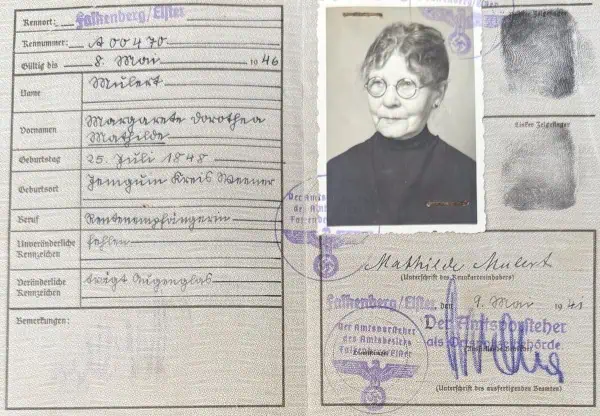 Kennort: Falkenberg/Elster
Kennummer: A 00470
Gültig bis 8. Mai 1946
Name Mulert
Vornamen Margarete Dorothea
Mathilde
Geburtstag 25. Juli 1848
Geburtsort Jemgum Kreis Weener
Beruf Rentenempfängerin
Unveränderliche
Kennzeichen fehlen
Veränderliche
Kennzeichen trägt Augenglas
Bemerkungen:
Zeigefinger
Linker Zeigefinger
Der Amtsvorsteher
des Amts
Falkenberg
Mathilde Mulert
(Unterschrift des Kennkarteninhabers)
Falkenberg/Elster, den 9. Mai 1941
Der Amtsvorsteher
des Amtsbezirks
Falkenberg Elster
Der Amtsvorsteher
als Ortspolizeibehörde.
(Unterschrift des ausfertigenden Beamten)